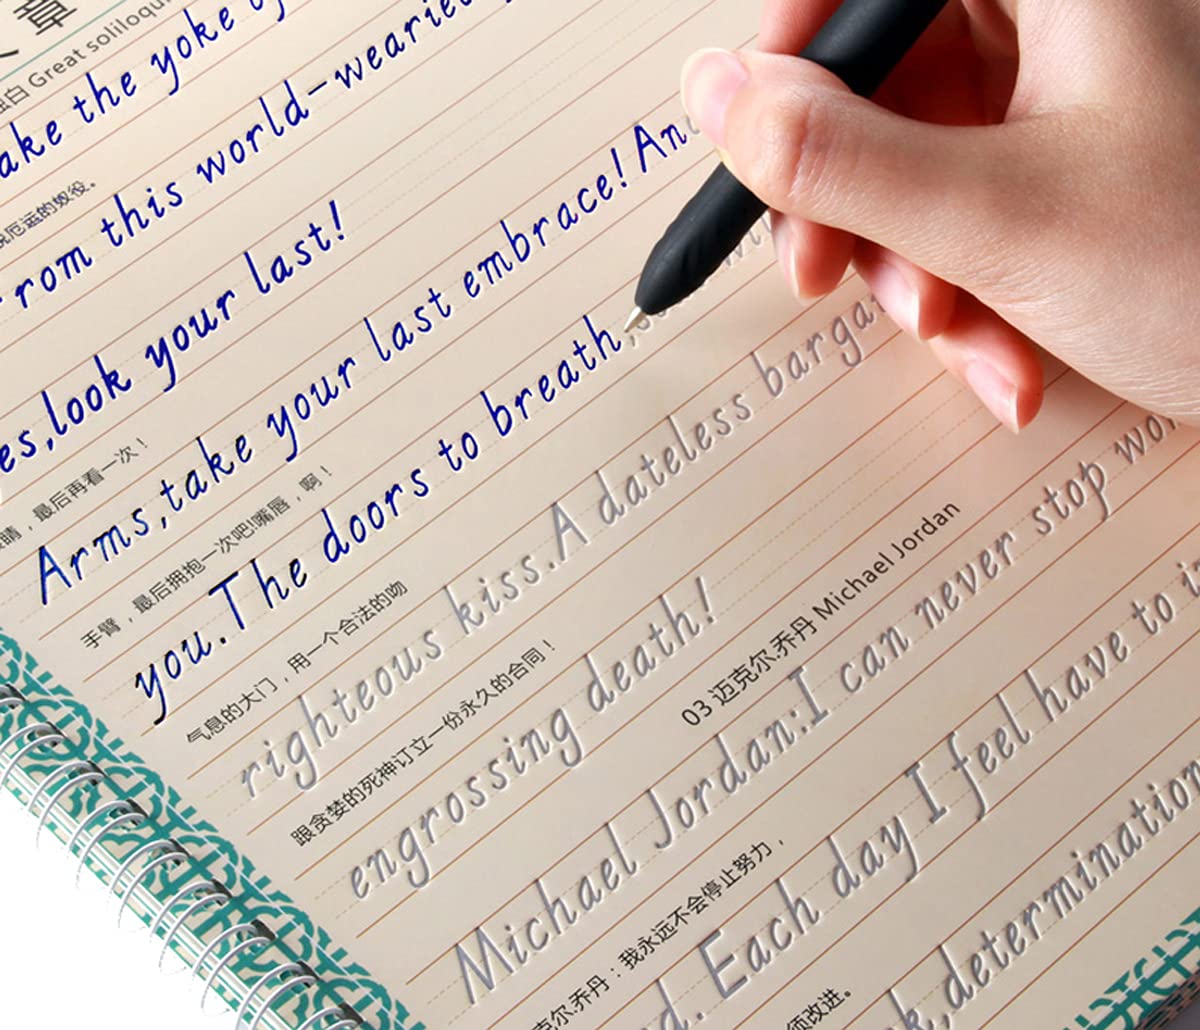 章
独白 Great soliloqu
ake the yoke o
脱厄运的奴役。
rom this world-wearie
es,look your last!
睛，最后再看一次！
Arms,take your last embrace! An
手臂，最后拥抱一次吧!嘴唇，啊！
you.The doors to breath,
气息的大门，用一个合法的吻
righteous kiss.A dateless barga
跟贪婪的死神订立一份永久的合同！
engrossing death!
03 迈克尔.乔丹 Michael Jordan
Michael Jordan:I can never stop wo
克尔.乔丹：我永远不会停止努力，
d. Each day I feel have to i
须改进。
k,determination